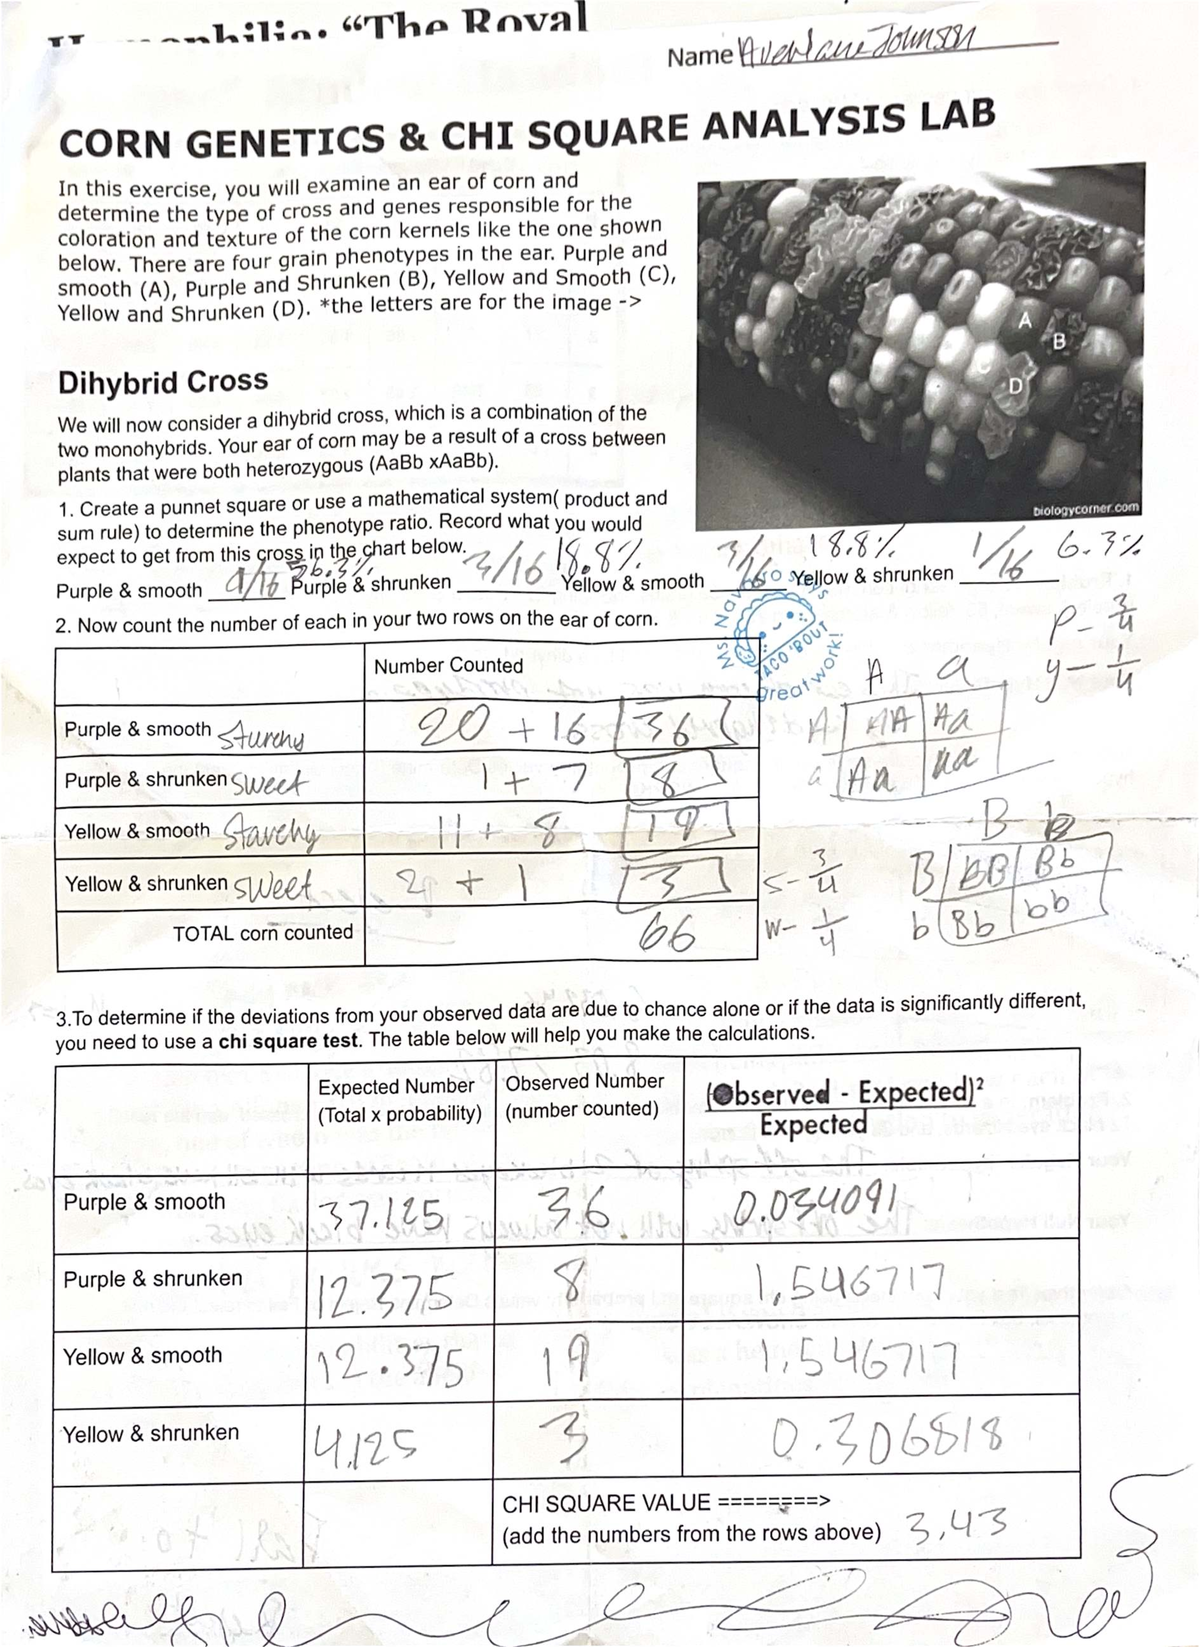 "The Royal
Name Johnson
CORN GENETICS & CHI SQUARE ANALYSIS LAB
In this exercise, you will examine an ear of corn and
determine the type of cross and genes responsible for the
coloration and texture of the corn kernels like the one shown
below. There are four grain phenotypes in the ear. Purple and
smooth (A), Purple and Shrunken (B), Yellow and Smooth (C),
Yellow and Shrunken (D). *the letters are for the image ->
A
B
C
D
biologycorner.com
Dihybrid Cross
We will now consider a dihybrid cross, which is a combination of the
two monohybrids. Your ear of corn may be a result of a cross between
plants that were both heterozygous (AaBb xAaBb).
1. Create a punnet square or use a mathematical system( product and
sum rule) to determine the phenotype ratio. Record what you would
expect to get from this cross in the chart below.
56.3% 18.8% 18.8% 6.3%
Purple & smooth 9/16 Purple & shrunken 3/16 Yellow & smooth 3/16 Yellow & shrunken 1/16
2. Now count the number of each in your two rows on the ear of corn.
Ms. Navarro says
TACO 'BOUT
great work!
P- 3/4
y- 1/4
Number Counted
Purple & smooth Starchy 20 + 16 36
Purple & shrunken sweet 1 + 7 8
Yellow & smooth Starchy 11 + 8 19
Yellow & shrunken sweet 2 + 1 3
TOTAL corn counted 66
A a
A AA Aa
a Aa aa
B b
B BB Bb
b Bb bb
S- 3/4
W- 1/4
3.To determine if the deviations from your observed data are due to chance alone or if the data is significantly different,
you need to use a chi square test. The table below will help you make the calculations.
Expected Number (Total x probability) Observed Number (number counted) (Observed - Expected)²
Expected
Purple & smooth 37.125 36 0.034091
Purple & shrunken 12.375 8 1.546717
Yellow & smooth 12.375 19 1.546717
Yellow & shrunken 4.125 3 0.306818
CHI SQUARE VALUE ========>
(add the numbers from the rows above) 3.43